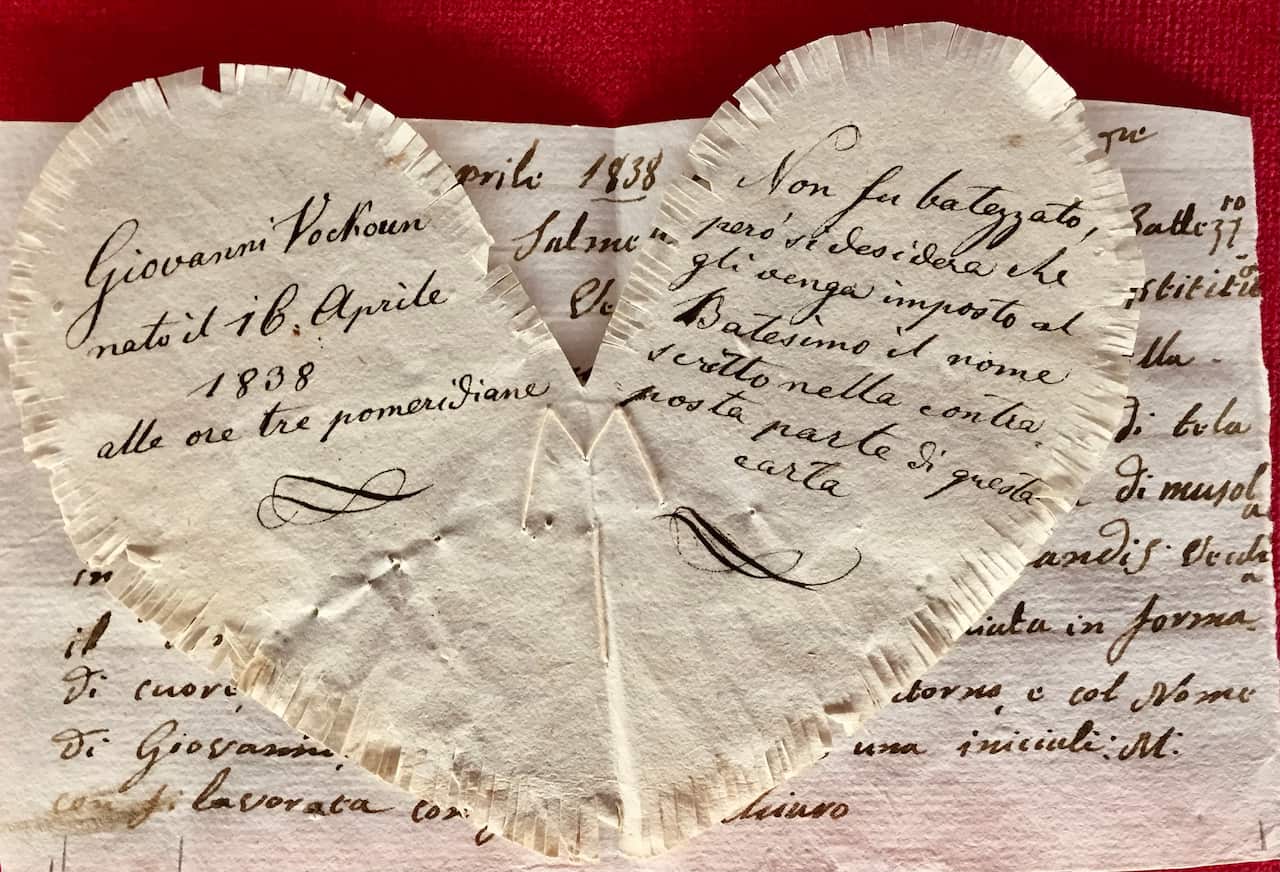 Giovanni Vockoun
nato il 16. Aprile
1838
alle ore tre pomeridiane
Non fu batezzato,
però si desidera che
gli venga imposto al
Batesimo il nome
scritto nella contra-
posta parte di questa
carta
prile 1838
Salme
di tela
di musol
in
il
in forma
di cuore
torno, e col Nome
di Giovanni
una iniciali: M:
lavorata con